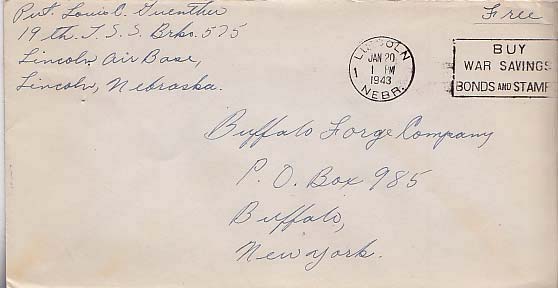 Pvt. Louis C. Guenther
19 th. T. S. S. Brks. 575
Lincoln Air Base,
Lincoln, Nebraska.
Free
LINCOLN
JAN 20
1 PM
1943
NEBR.
1
BUY
WAR SAVINGS
BONDS AND STAMP
Buffalo Forge Company
P. O. Box 985
Buffalo,
New York.